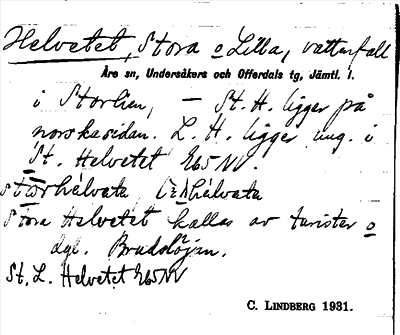 Helvetet, Stora o Lilla, vattenfall
Åre sn, Undersåkers och Offerdals tg, Jämtl. l.
i Storlien, – St. H. ligger på
norska sidan. L. H. ligger ung. i
St. Helvetet 265 NV.
Stora Helvetet kallas av turister o
dyl. Brudslöjan.
St, L. Helvetet 265 NV
C. LINDBERG 1931.